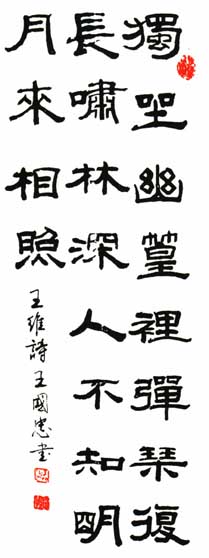 獨坐幽篁裡彈琴復
長嘯林深人不知明
月來相照
王維詩王國忠書